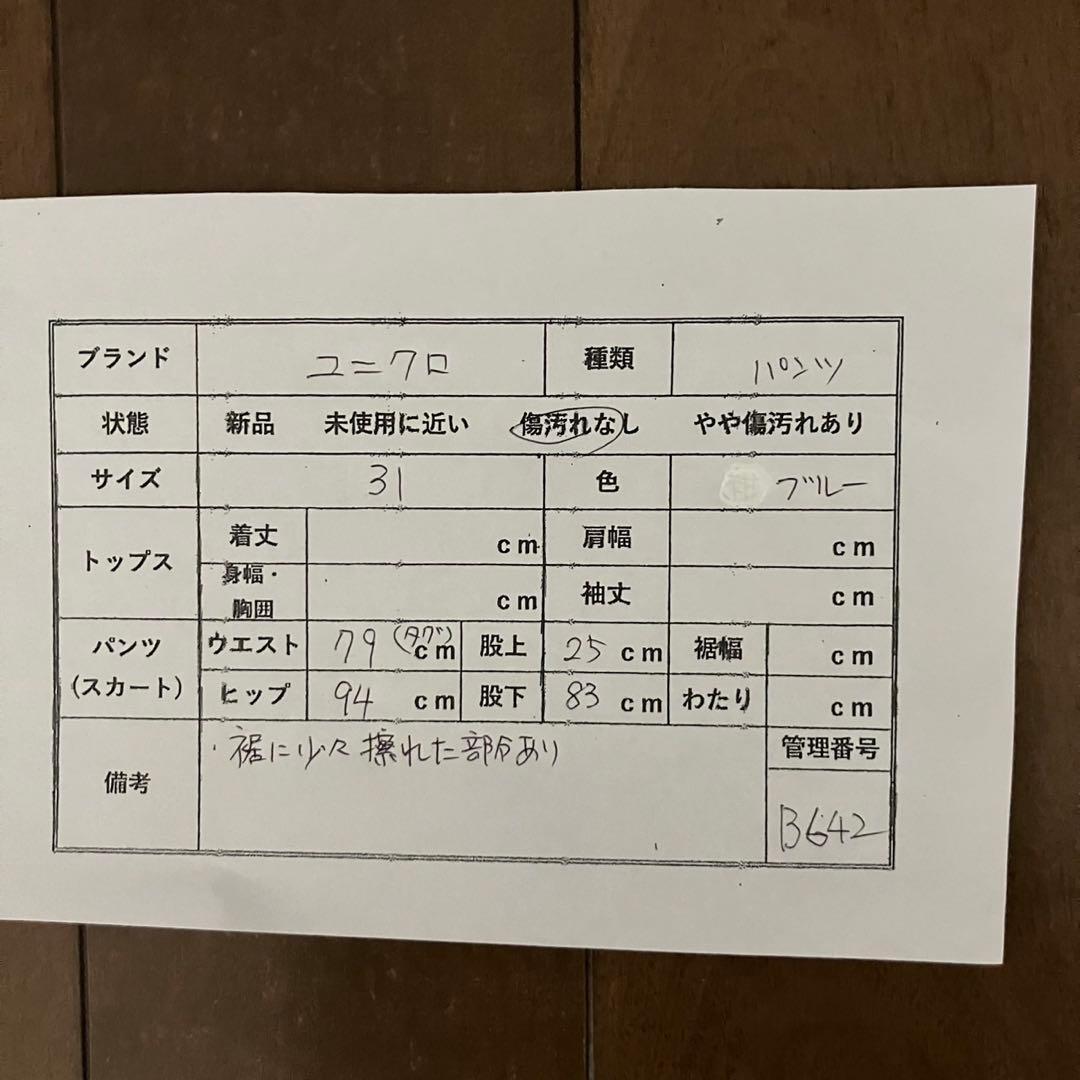 ブランド ユニクロ 種類 パンツ
状態 新品 未使用に近い 傷汚れなし やや傷汚れあり
サイズ 31 色 ブルー
トップス 着丈 cm 肩幅 cm
身幅・胸囲 cm 袖丈 cm
パンツ(スカート) ウエスト 79 (タグ) cm 股上 25 cm 裾幅 cm
ヒップ 94 cm 股下 83 cm わたり cm
備考 ・裾に少々擦れた部分あり 管理番号
B642